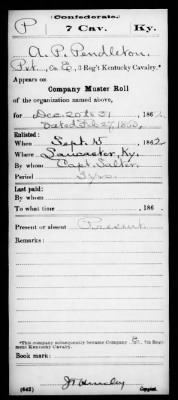 Confederate.
P 7 Cav. Ky.
A. P. Pendleton
Pvt., Co. E, 3 Reg't Kentucky Cavalry.*
Appears on
Company Muster Roll
of the organization named above,
for Dec. 20 to 31, 1862
Dated Feb 27, 1863.
Enlisted:
When Sept. 15, 1862
Where Lancaster, Ky.
By whom Capt. Salter
Period 3 yrs.
Last paid:
By whom
To what time , 186 .
Present or absent Present
Remarks:
*This company subsequently became Company E, 7th Regiment Kentucky Cavalry.
Book mark:
(642) Copyist.